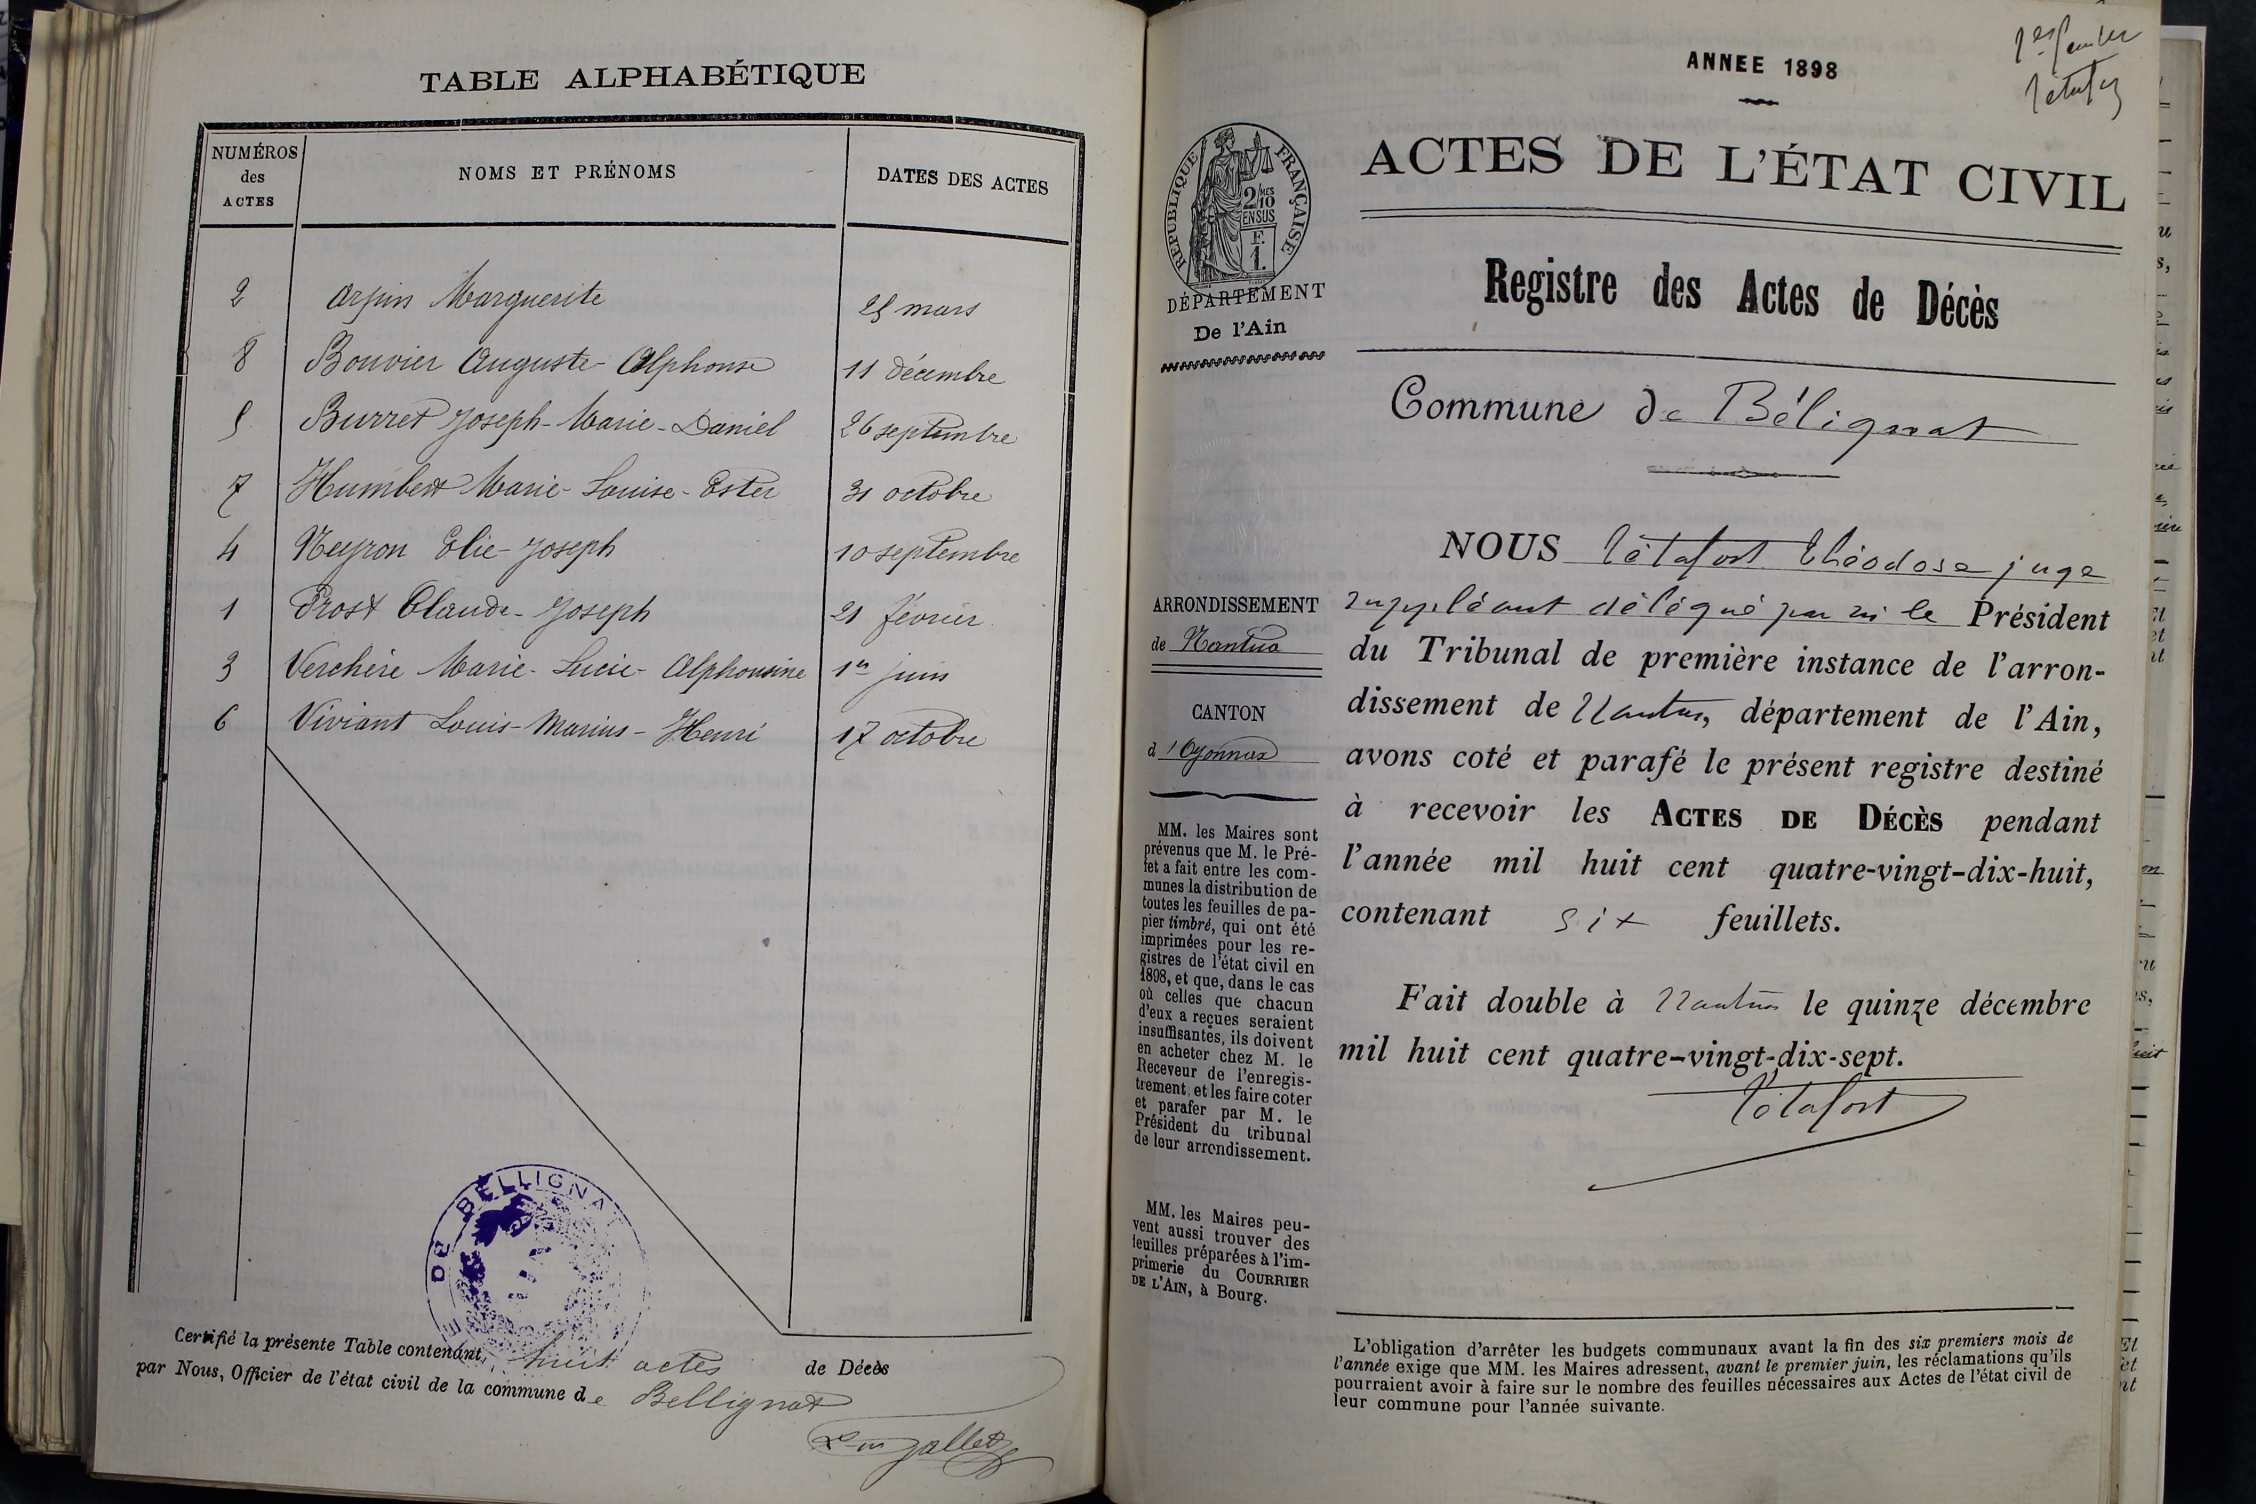 TABLE ALPHABÉTIQUE
NUMÉROS des ACTES NOMS ET PRÉNOMS DATES DES ACTES
2 Arpin Marguerite 25 mars
8 Bouvier Auguste-Alphonse 11 décembre
5 Burret Joseph-Marie-Daniel 26 septembre
7 Humbert Marie-Louise-Ester 31 octobre
4 Neyron Elie-Joseph 10 septembre
1 Prost Claude-Joseph 21 février
3 Verchère Marie-Lucie-Alphonsine 1er juin
6 Viviant Louis-Marius-Henri 17 octobre
DE BELLIGNAT
Certifié la présente Table contenant huit actes de Décès
par Nous, Officier de l'état civil de la commune de Bellignat
ANNEE 1898
1er feuillet
Tétafort
RÉPUBLIQUE FRANÇAISE
2/10 MES
EN SUS
F.
1.
DÉPARTEMENT
De l'Ain
ACTES DE L'ÉTAT CIVIL
Registre des Actes de Décès
Commune de Bélignat
ARRONDISSEMENT
de Nantua
CANTON
d'Oyonnax
MM. les Maires sont
prévenus que M. le Pré-
fet a fait entre les com-
munes la distribution de
toutes les feuilles de pa-
pier timbré, qui ont été
imprimées pour les re-
gistres de l'état civil en
1898, et que, dans le cas
où celles que chacun
d'eux a reçues seraient
insuffisantes, ils doivent
en acheter chez M. le
Receveur de l'enregis-
trement, et les faire coter
et parafer par M. le
Président du tribunal
de leur arrondissement.
MM. les Maires peu-
vent aussi trouver des
feuilles préparées à l'im-
primerie du COURRIER
DE L'AIN, à Bourg.
NOUS Tétafort Théodose juge
suppléant délégué par M le Président
du Tribunal de première instance de l'arron-
dissement de Nantua, département de l'Ain,
avons coté et parafé le présent registre destiné
à recevoir les ACTES DE DÉCÈS pendant
l'année mil huit cent quatre-vingt-dix-huit,
contenant six feuillets.
Fait double à Nantua le quinze décembre
mil huit cent quatre-vingt-dix-sept.
Tétafort
L'obligation d'arrêter les budgets communaux avant la fin des six premiers mois de
l'année exige que MM. les Maires adressent, avant le premier juin, les réclamations qu'ils
pourraient avoir à faire sur le nombre des feuilles nécessaires aux Actes de l'état civil de
leur commune pour l'année suivante.